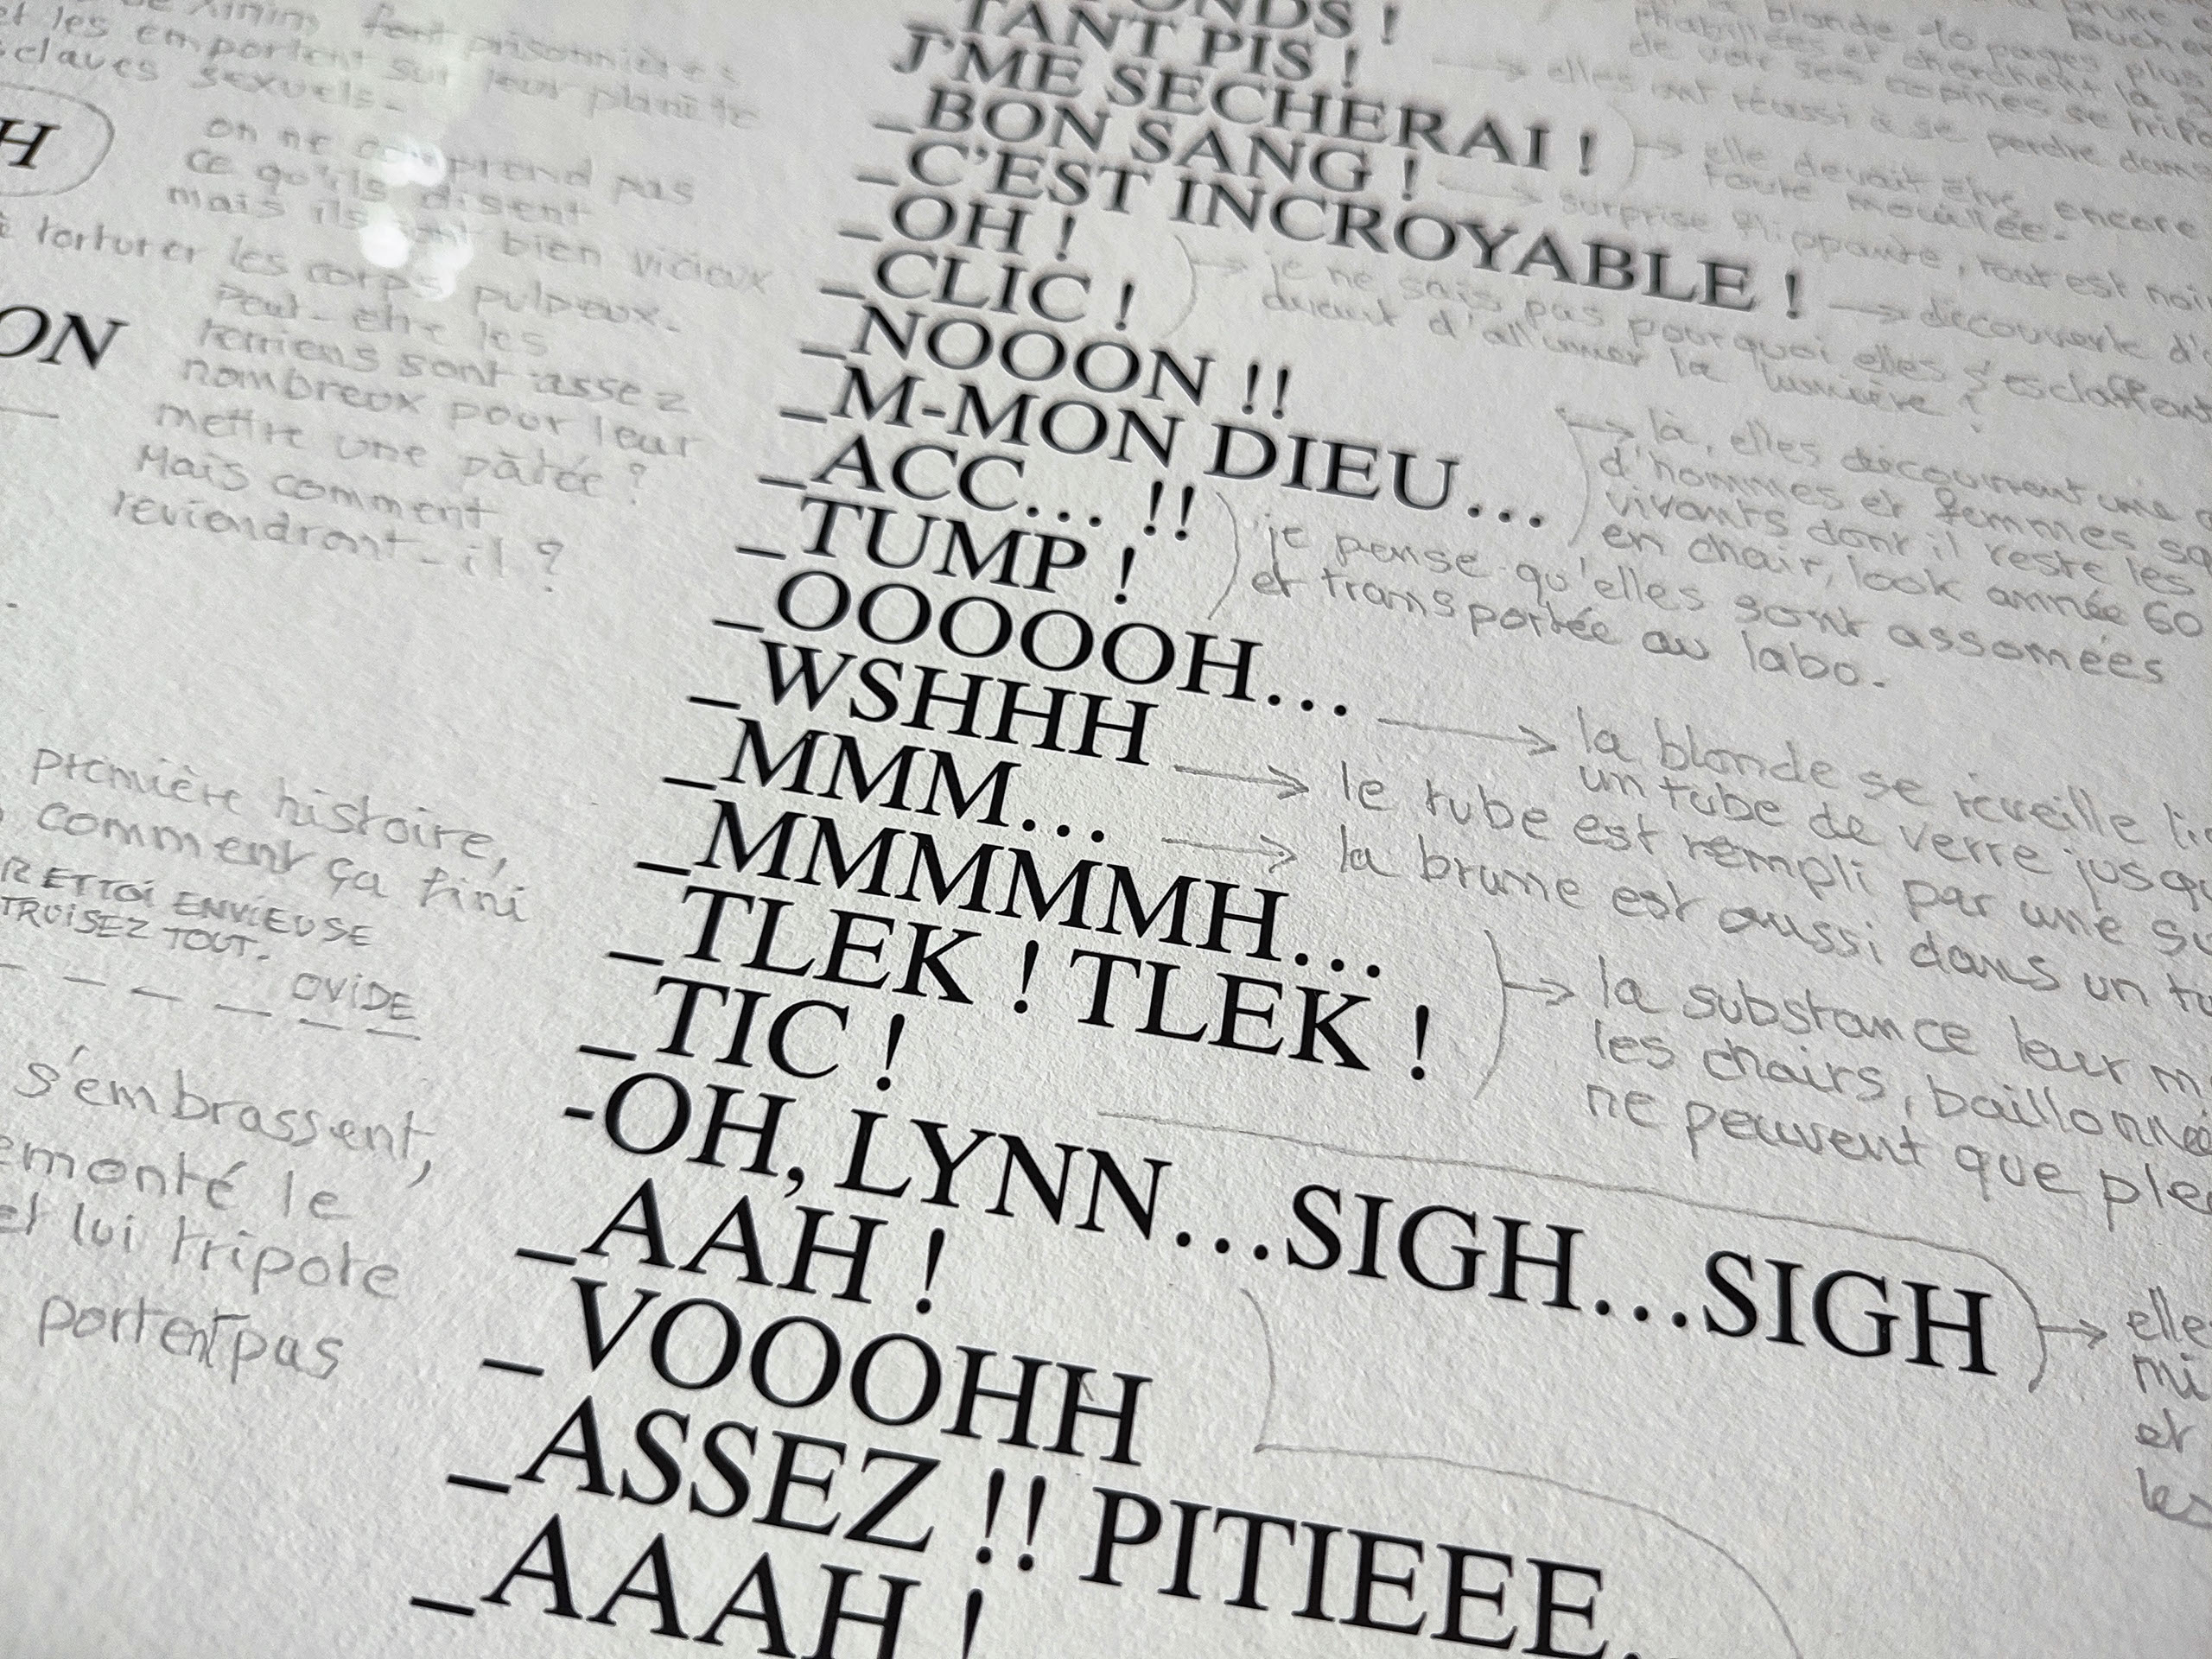 et les emportent sur leur planète
esclaves sexuels.
H
on ne comprend pas
ce qu'ils disent
mais ils sont bien vicieux
à torturer les corps pulpeux.
ON
Peut-être les
terriens sont assez
nombreux pour leur
mettre une pâtée ?
Mais comment
reviendront-il ?
première histoire,
comment ça fini
R ET TOI ENVIEUSE
TRUISEZ TOUT.
OVIDE
s'embrassent,
emonté le
et lui tripote
portent pas
ONDS !
_TANT PIS !
J'ME SECHERAI !
_BON SANG !
_C'EST INCROYABLE !
_OH !
_CLIC !
_NOOON !!
_M-MON DIEU...
_ACC... !!
_TUMP !
_OOOOOH...
_WSHHH
_MMM...
_MMMMMH...
_TLEK ! TLEK !
_TIC !
-OH, LYNN...SIGH...SIGH
_AAH !
_VOOOHH
_ASSEZ !! PITIEEE.
_AAAH !
la blonde 10 pages plus
et cherchent la
de voir ses copines se
elles ont réussi à se perdre dans
elle devrait être encore
toute mouillée.
surprise flippante, tout est noi
découverte d'
je ne sais pas pourquoi elles s'esclaffent
d'allumer la lumière ?
là, elles découvrent une
d'hommes et femmes
vivants dont il reste les
en chair, look année 60
je pense qu'elles sont assomées
et transportée au labo.
la blonde se réveille
un tube de verre jusqu
le tube est rempli par une su
la brune est aussi dans un tu
la substance leur m
les chairs, baillonnée
ne peuvent que ple
elle
mi
et
les